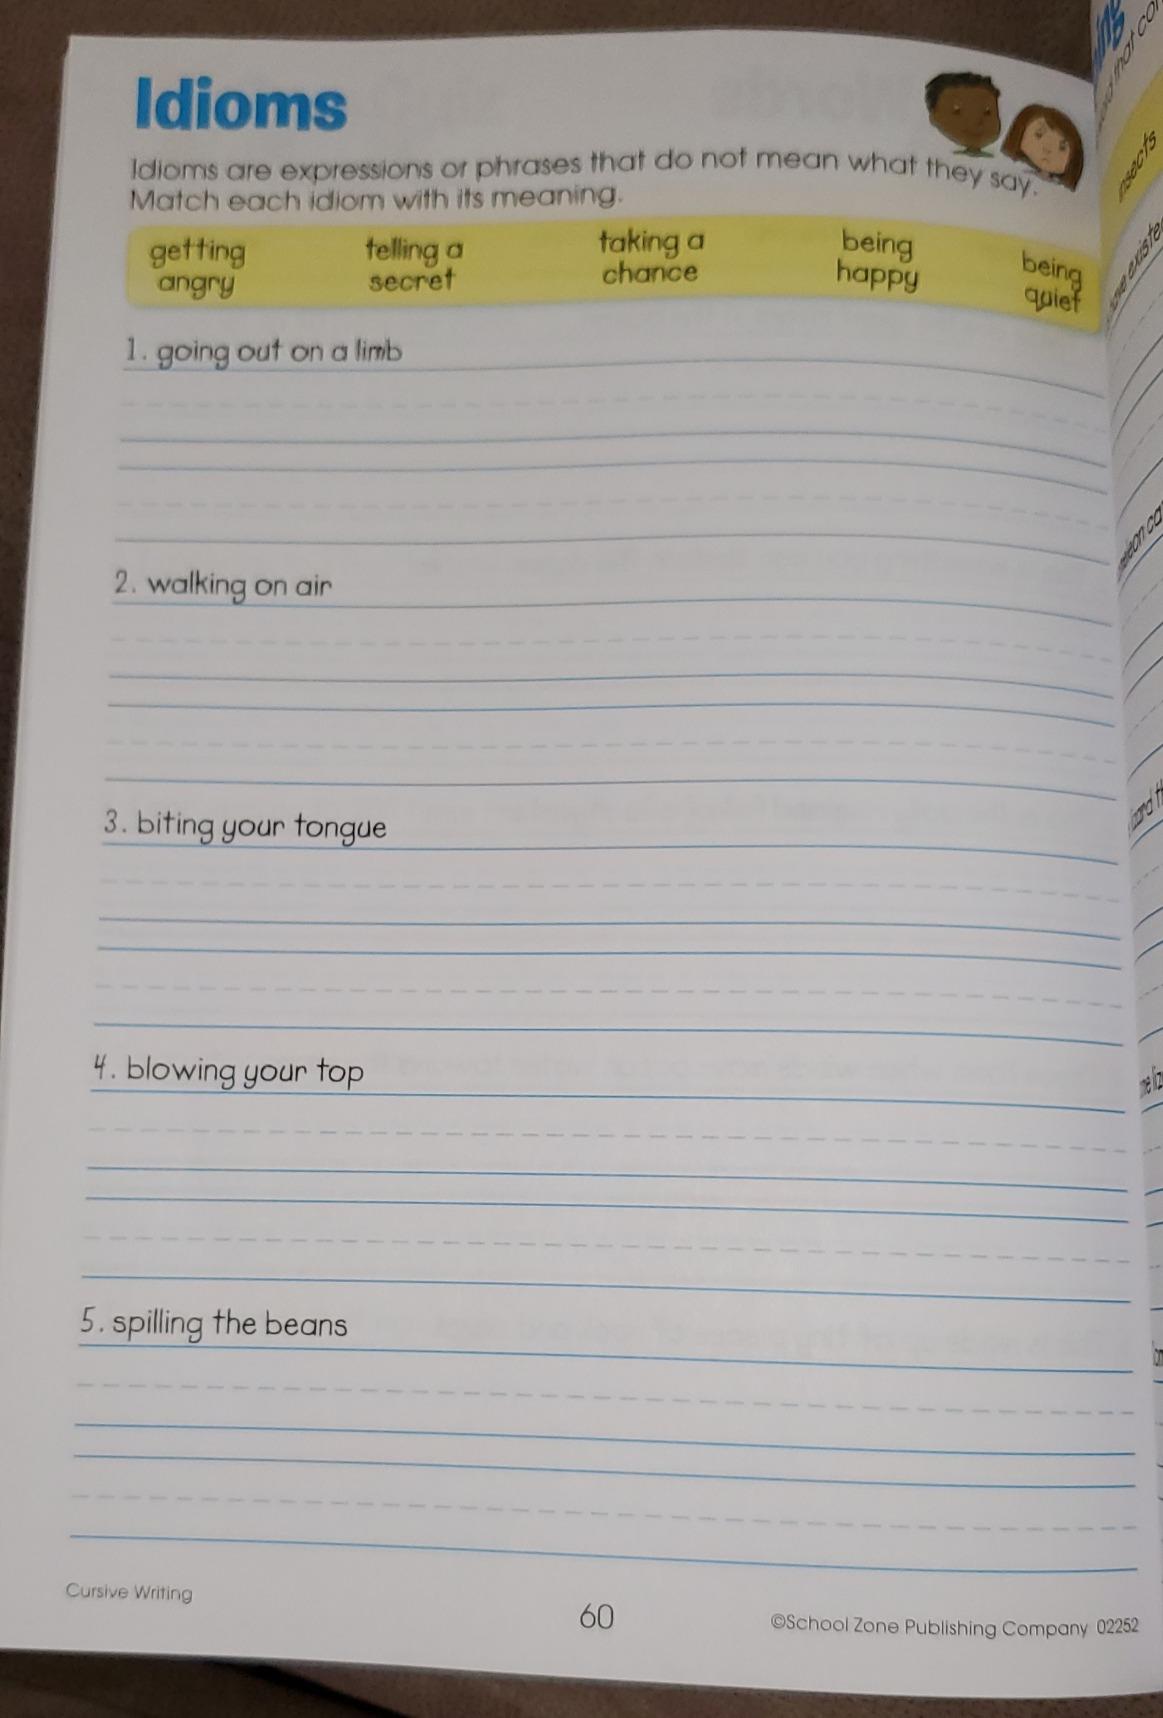 Idioms
Idioms are expressions or phrases that do not mean what they say.
Match each idiom with its meaning.
getting angry
telling a secret
taking a chance
being happy
being quiet
1. going out on a limb
2. walking on air
3. biting your tongue
4. blowing your top
5. spilling the beans
Cursive Writing
60
©School Zone Publishing Company 02252
that
insects